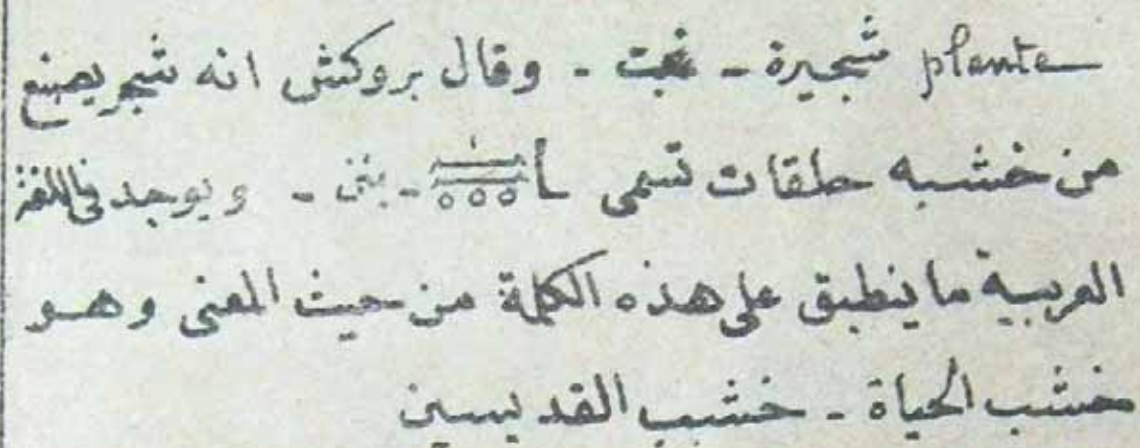 plante شجيرة ـ نبت ـ وقال بروكش انه شجر يصنع
من خشبه حلقات تسمى ـ بنن ـ ويوجد فى اللغة
العربية ما ينطبق على هذه الكلمة من حيث المعنى وهو
خشب الحياة ـ خشب القديسين